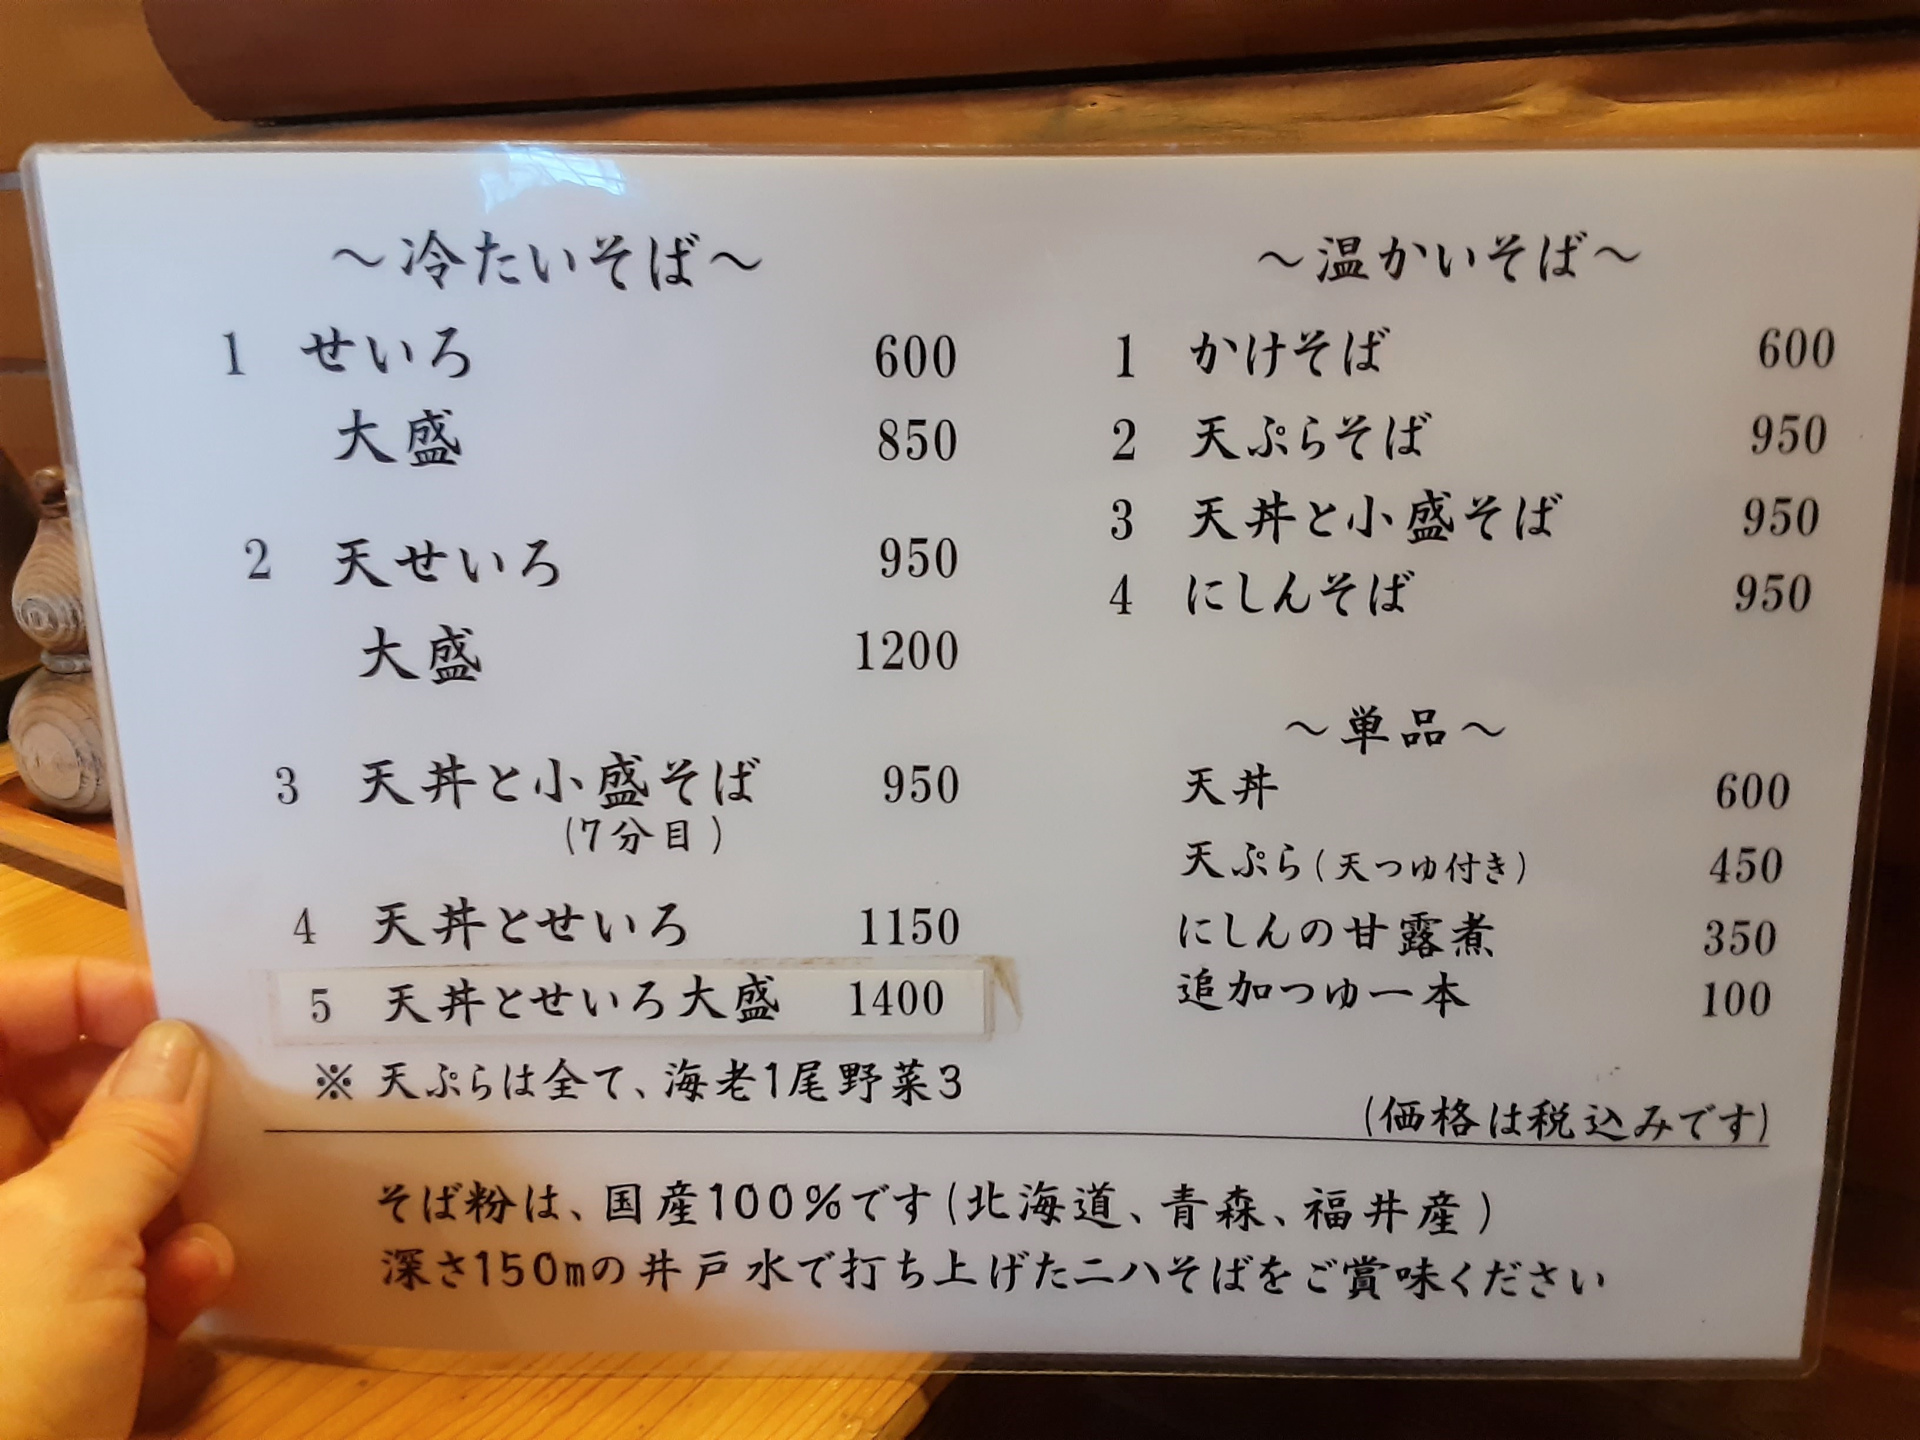 ～冷たいそば～
1 せいろ 600
大盛 850
2 天せいろ 950
大盛 1200
3 天丼と小盛そば 950
(7分目)
4 天丼とせいろ 1150
5 天丼とせいろ大盛 1400
※ 天ぷらは全て、海老1尾野菜3
～温かいそば～
1 かけそば 600
2 天ぷらそば 950
3 天丼と小盛そば 950
4 にしんそば 950
～単品～
天丼 600
天ぷら(天つゆ付き) 450
にしんの甘露煮 350
追加つゆ一本 100
(価格は税込みです)
そば粉は、国産100%です(北海道、青森、福井産)
深さ150mの井戸水で打ち上げた二八そばをご賞味ください